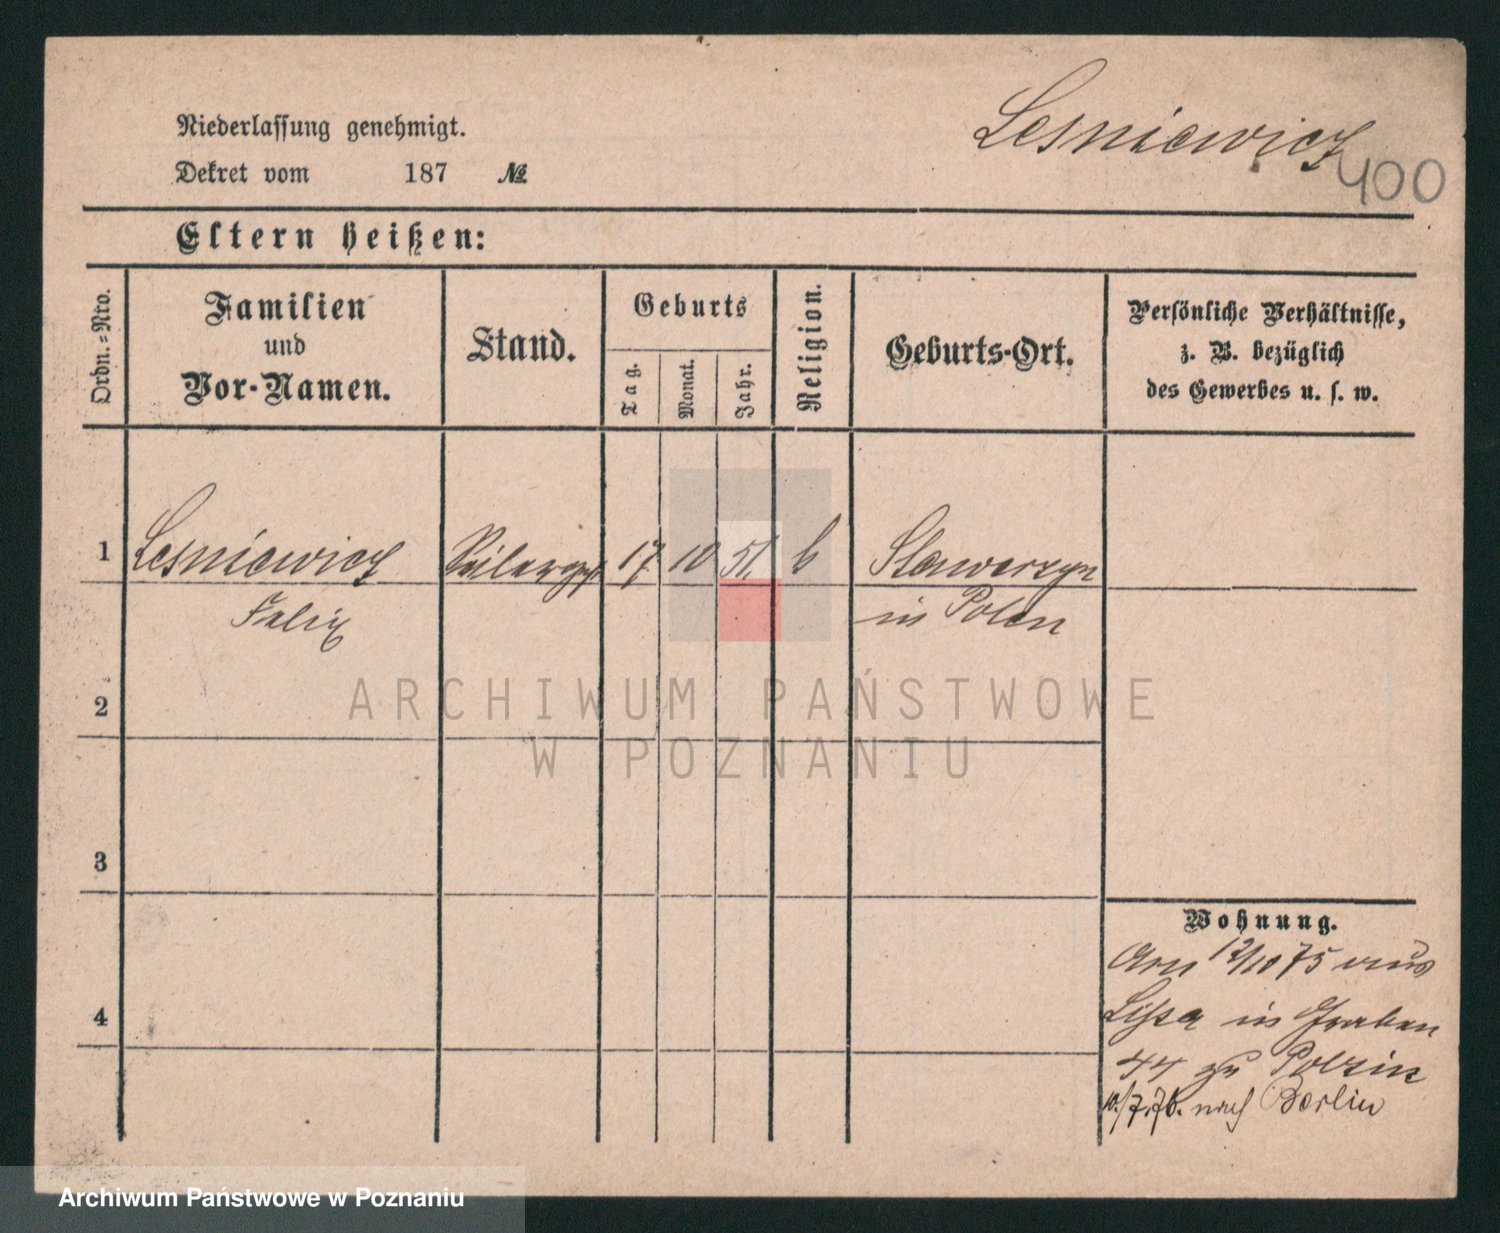 Lesniewicz
400
Niederlassung genehmigt.
Dekret vom 187 №
Eltern heißen:
Ordn.-Nro.
Familien
und
Vor-Namen.
Stand.
Geburts
Tag.
Monat.
Jahr.
Religion.
Geburts-Ort.
Persönliche Verhältnisse,
z. B. bezüglich
des Gewerbes u. s. w.
1 Lesniewicz 17 10 51.
Felix in Polen
2
3
4
Wohnung.
Am 12/10 75 aus
Lissa in Graben
44 zu Polzin
10./7.76. nach Berlin
ARCHIWUM PAŃSTWOWE
W POZNANIU
Archiwum Państwowe w Poznaniu